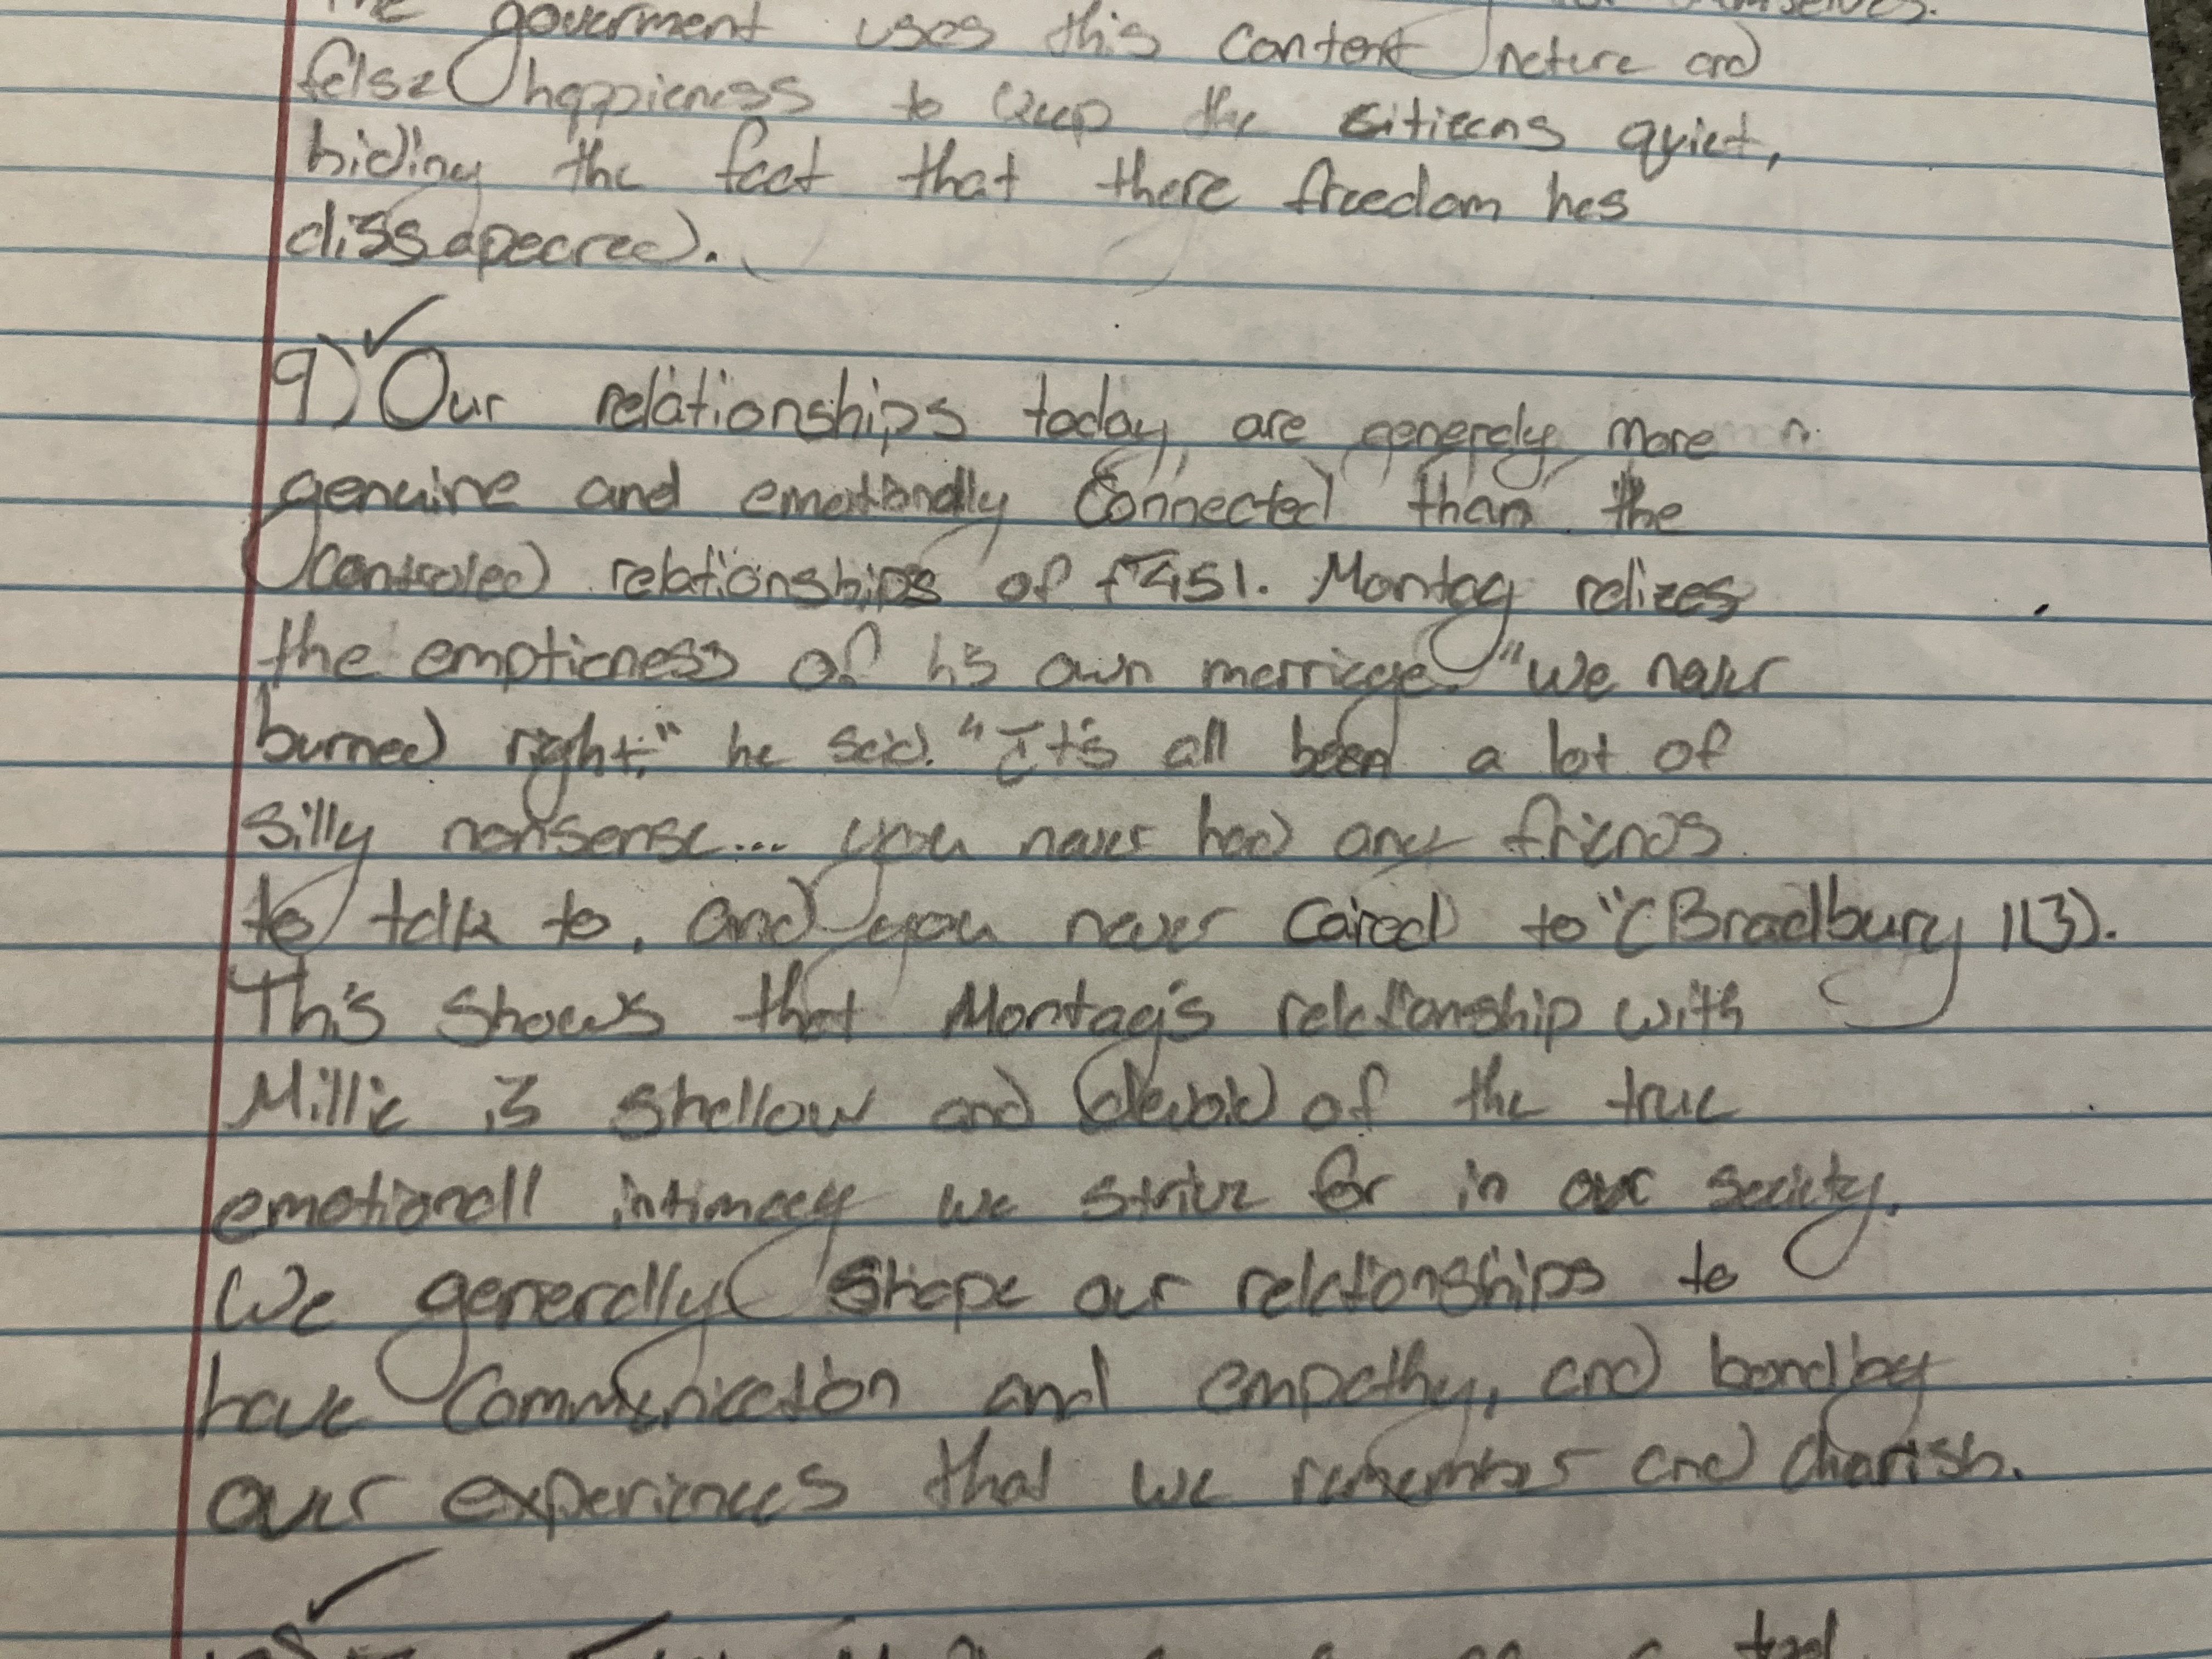 The goverment uses this content nature and
false happieness to keep the sitizens quiet,
hiding the fact that there freedom has
dissapeared.
9) Our relationships today, are generaly more
genuine and emotionally connected than the
controled relationships of F451. Montag relizes
the emptieness of his own marriage. "We never
burned right," he said. "It's all been a lot of
silly nonsense... you never had any friends
to talk to, and you never cared to" (Bradbury 113).
This shows that Montag's relationship with
Millie is shallow and devoid of the true
emotionall intimacy we strive for in our society.
We generally shape our relationships to
have communication and empathy, and bond by
our experiences that we remember and charish.